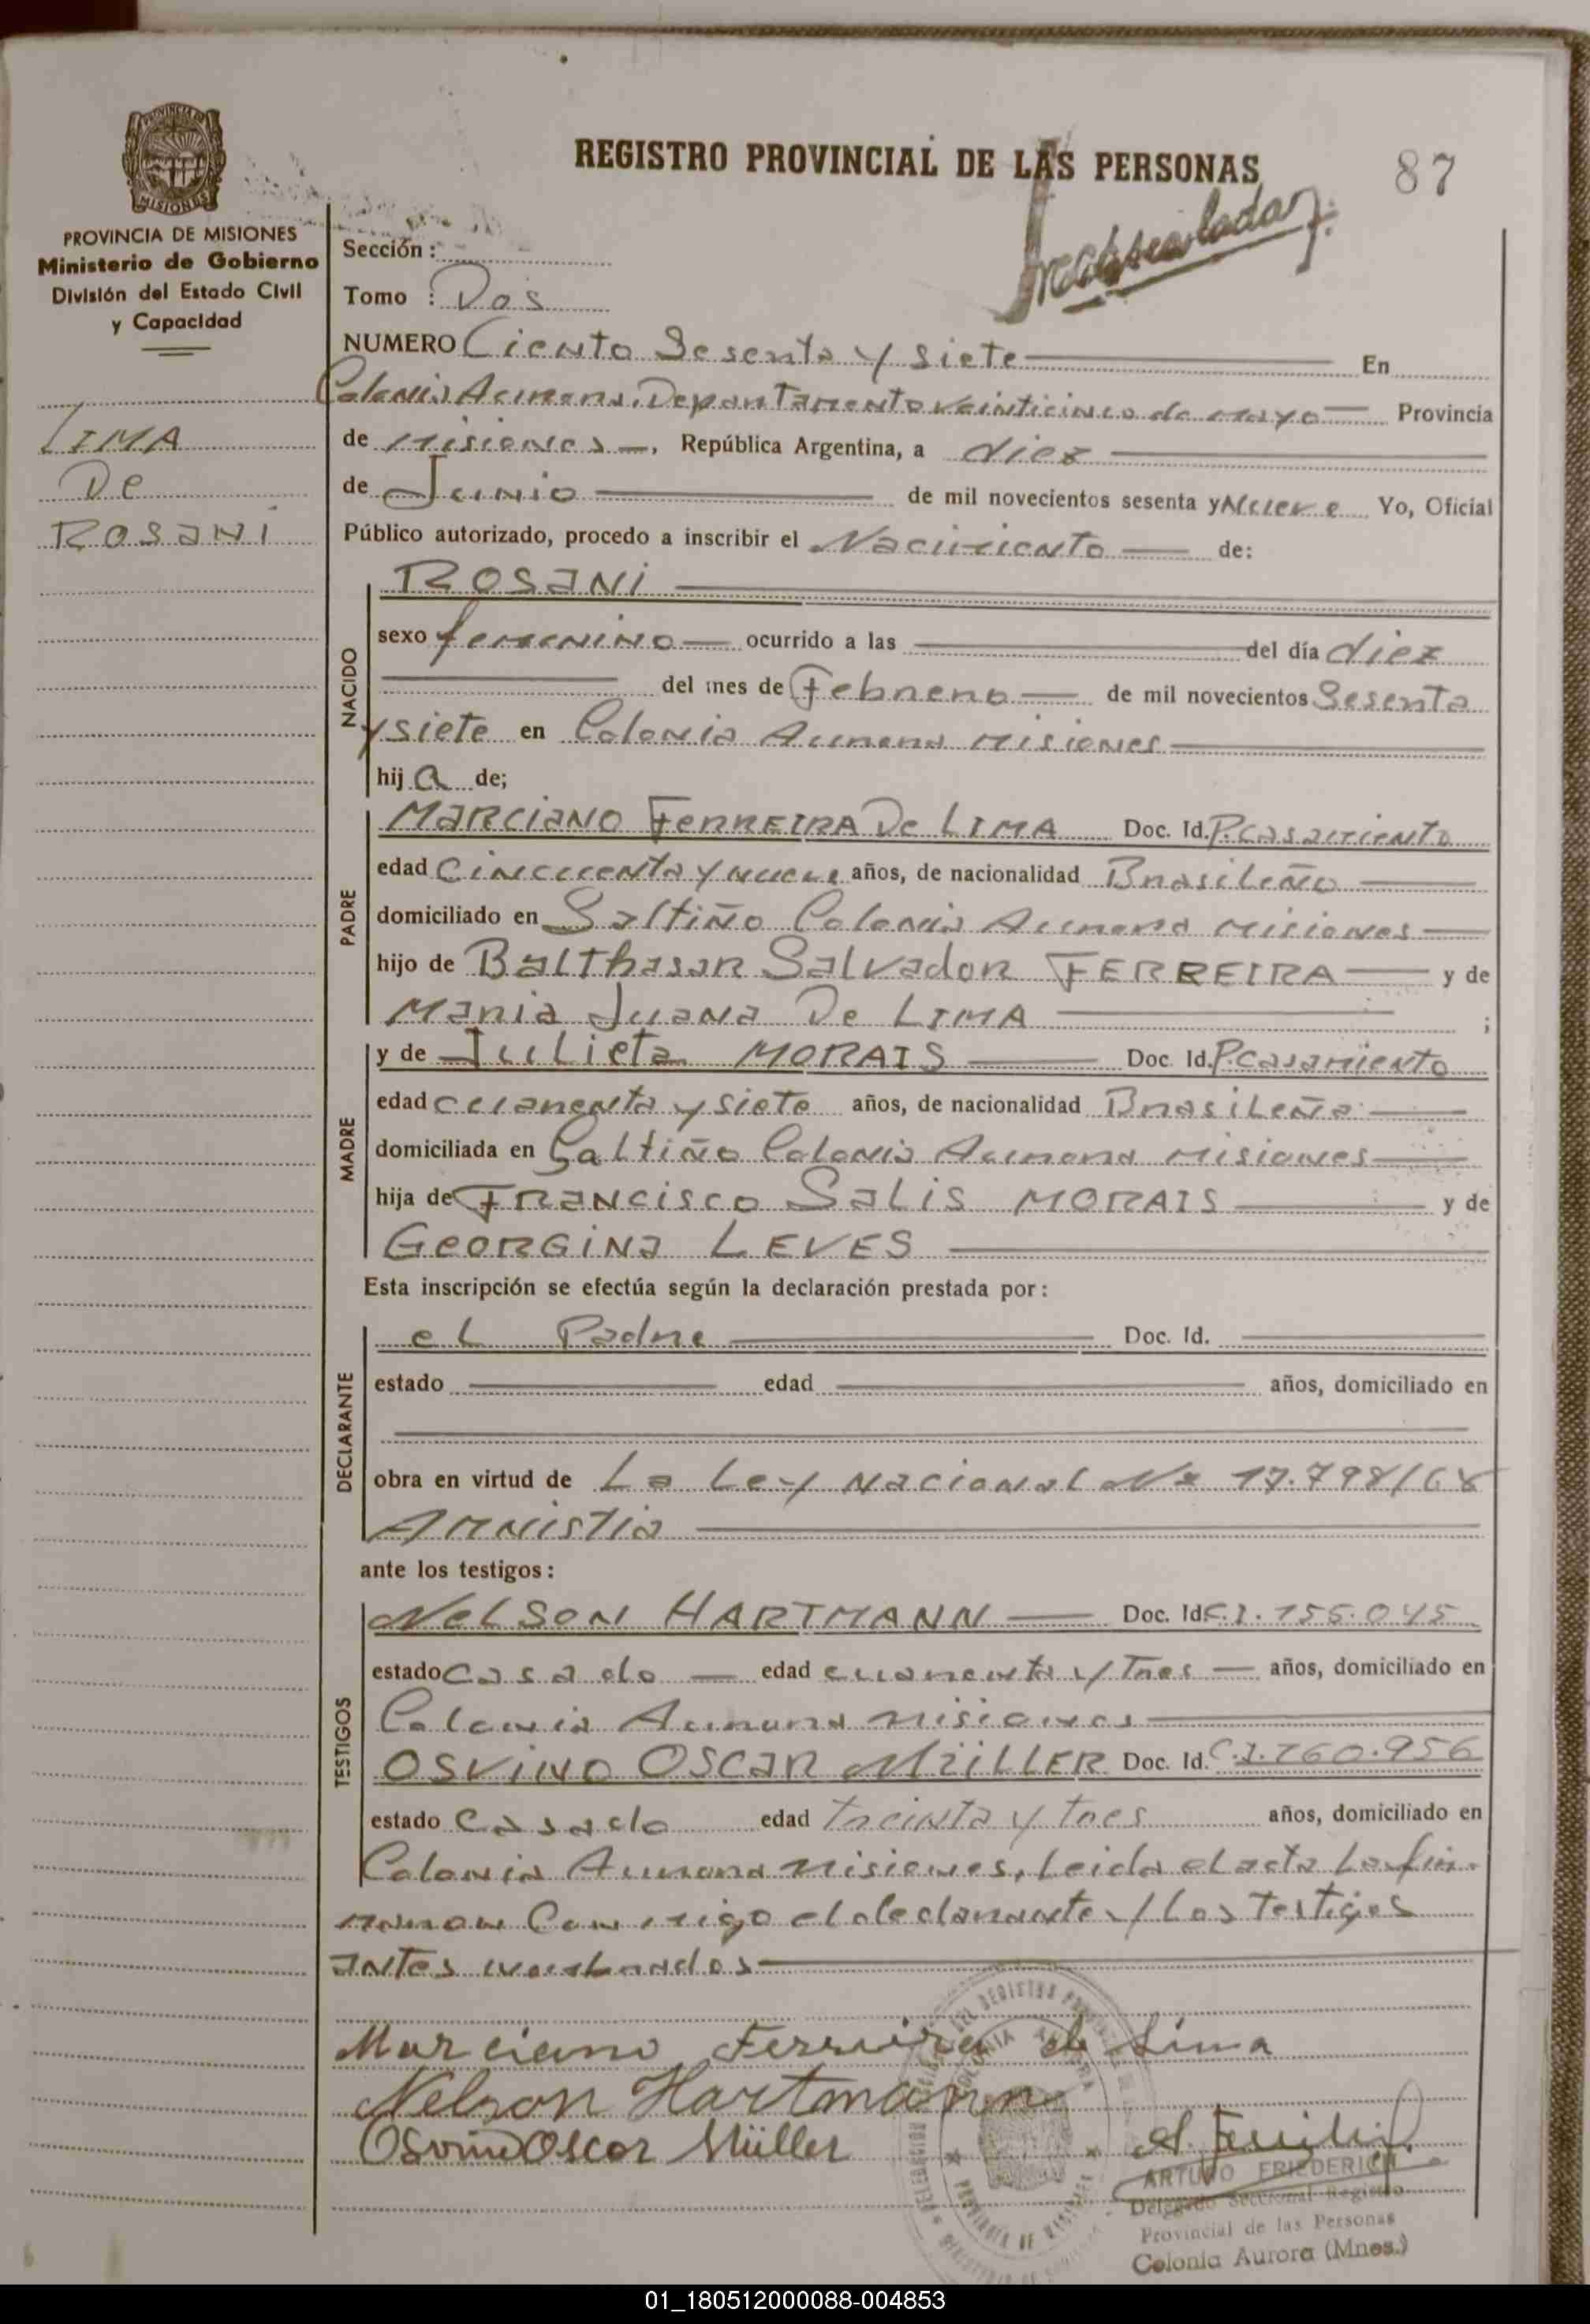 REGISTRO PROVINCIAL DE LAS PERSONAS
87
PROVINCIA DE MISIONES
PROVINCIA DE MISIONES
Ministerio de Gobierno
División del Estado Civil
y Capacidad
LIMA
De
ROSANI
Sección :
Tomo : Dos
NUMERO Ciento Sesenta y siete En
Colonia Aurora, Departamento veinticinco de mayo Provincia
de Misiones, República Argentina, a diez
de Junio de mil novecientos sesenta y Nueve Yo, Oficial
Público autorizado, procedo a inscribir el Nacimiento de:
NACIDO
ROSANI
sexo femenino ocurrido a las del día diez
del mes de Febrero de mil novecientos Sesenta
y siete en Colonia Aurora Misiones
hij a de;
PADRE
MARCIANO FERREIRA De LIMA Doc. Id. P. Casamiento
edad Cincuenta y nueve años, de nacionalidad Brasileño
domiciliado en Saltiño Colonia Aurora Misiones
hijo de Balthasar Salvador FERREIRA y de
Maria Juana De LIMA ;
MADRE
y de Julieta MORAIS Doc. Id. P. Casamiento
edad cuarenta y siete años, de nacionalidad Brasileña
domiciliada en Saltiño Colonia Aurora Misiones
hija de FRANCISCO Salis MORAIS y de
GEORGINA LEVES
Esta inscripción se efectúa según la declaración prestada por:
DECLARANTE
el Padre Doc. Id.
estado edad años, domiciliado en
obra en virtud de La Ley Nacional Nº 17.798/68
Amnistia
ante los testigos:
TESTIGOS
NELSON HARTMANN Doc. Id C.I. 155.045
estado Casado edad cuarenta y Tres años, domiciliado en
Colonia Aurora Misiones
OSVINO OSCAR MÜLLER Doc. Id. C.I. 160.956
estado Casado edad treinta y tres años, domiciliado en
Colonia Aurora Misiones, Leida el acta La fir-
maron Conmigo el declarante y Los Testigos
antes nombrados
Marciano Ferreira de Lima
Nelson Hartmann
Osvino Oscar Müller
ARTURO FRIEDERICH
Delegado Seccional Registro
Provincial de las Personas
Colonia Aurora (Mnes.)
01_180512000088-004853